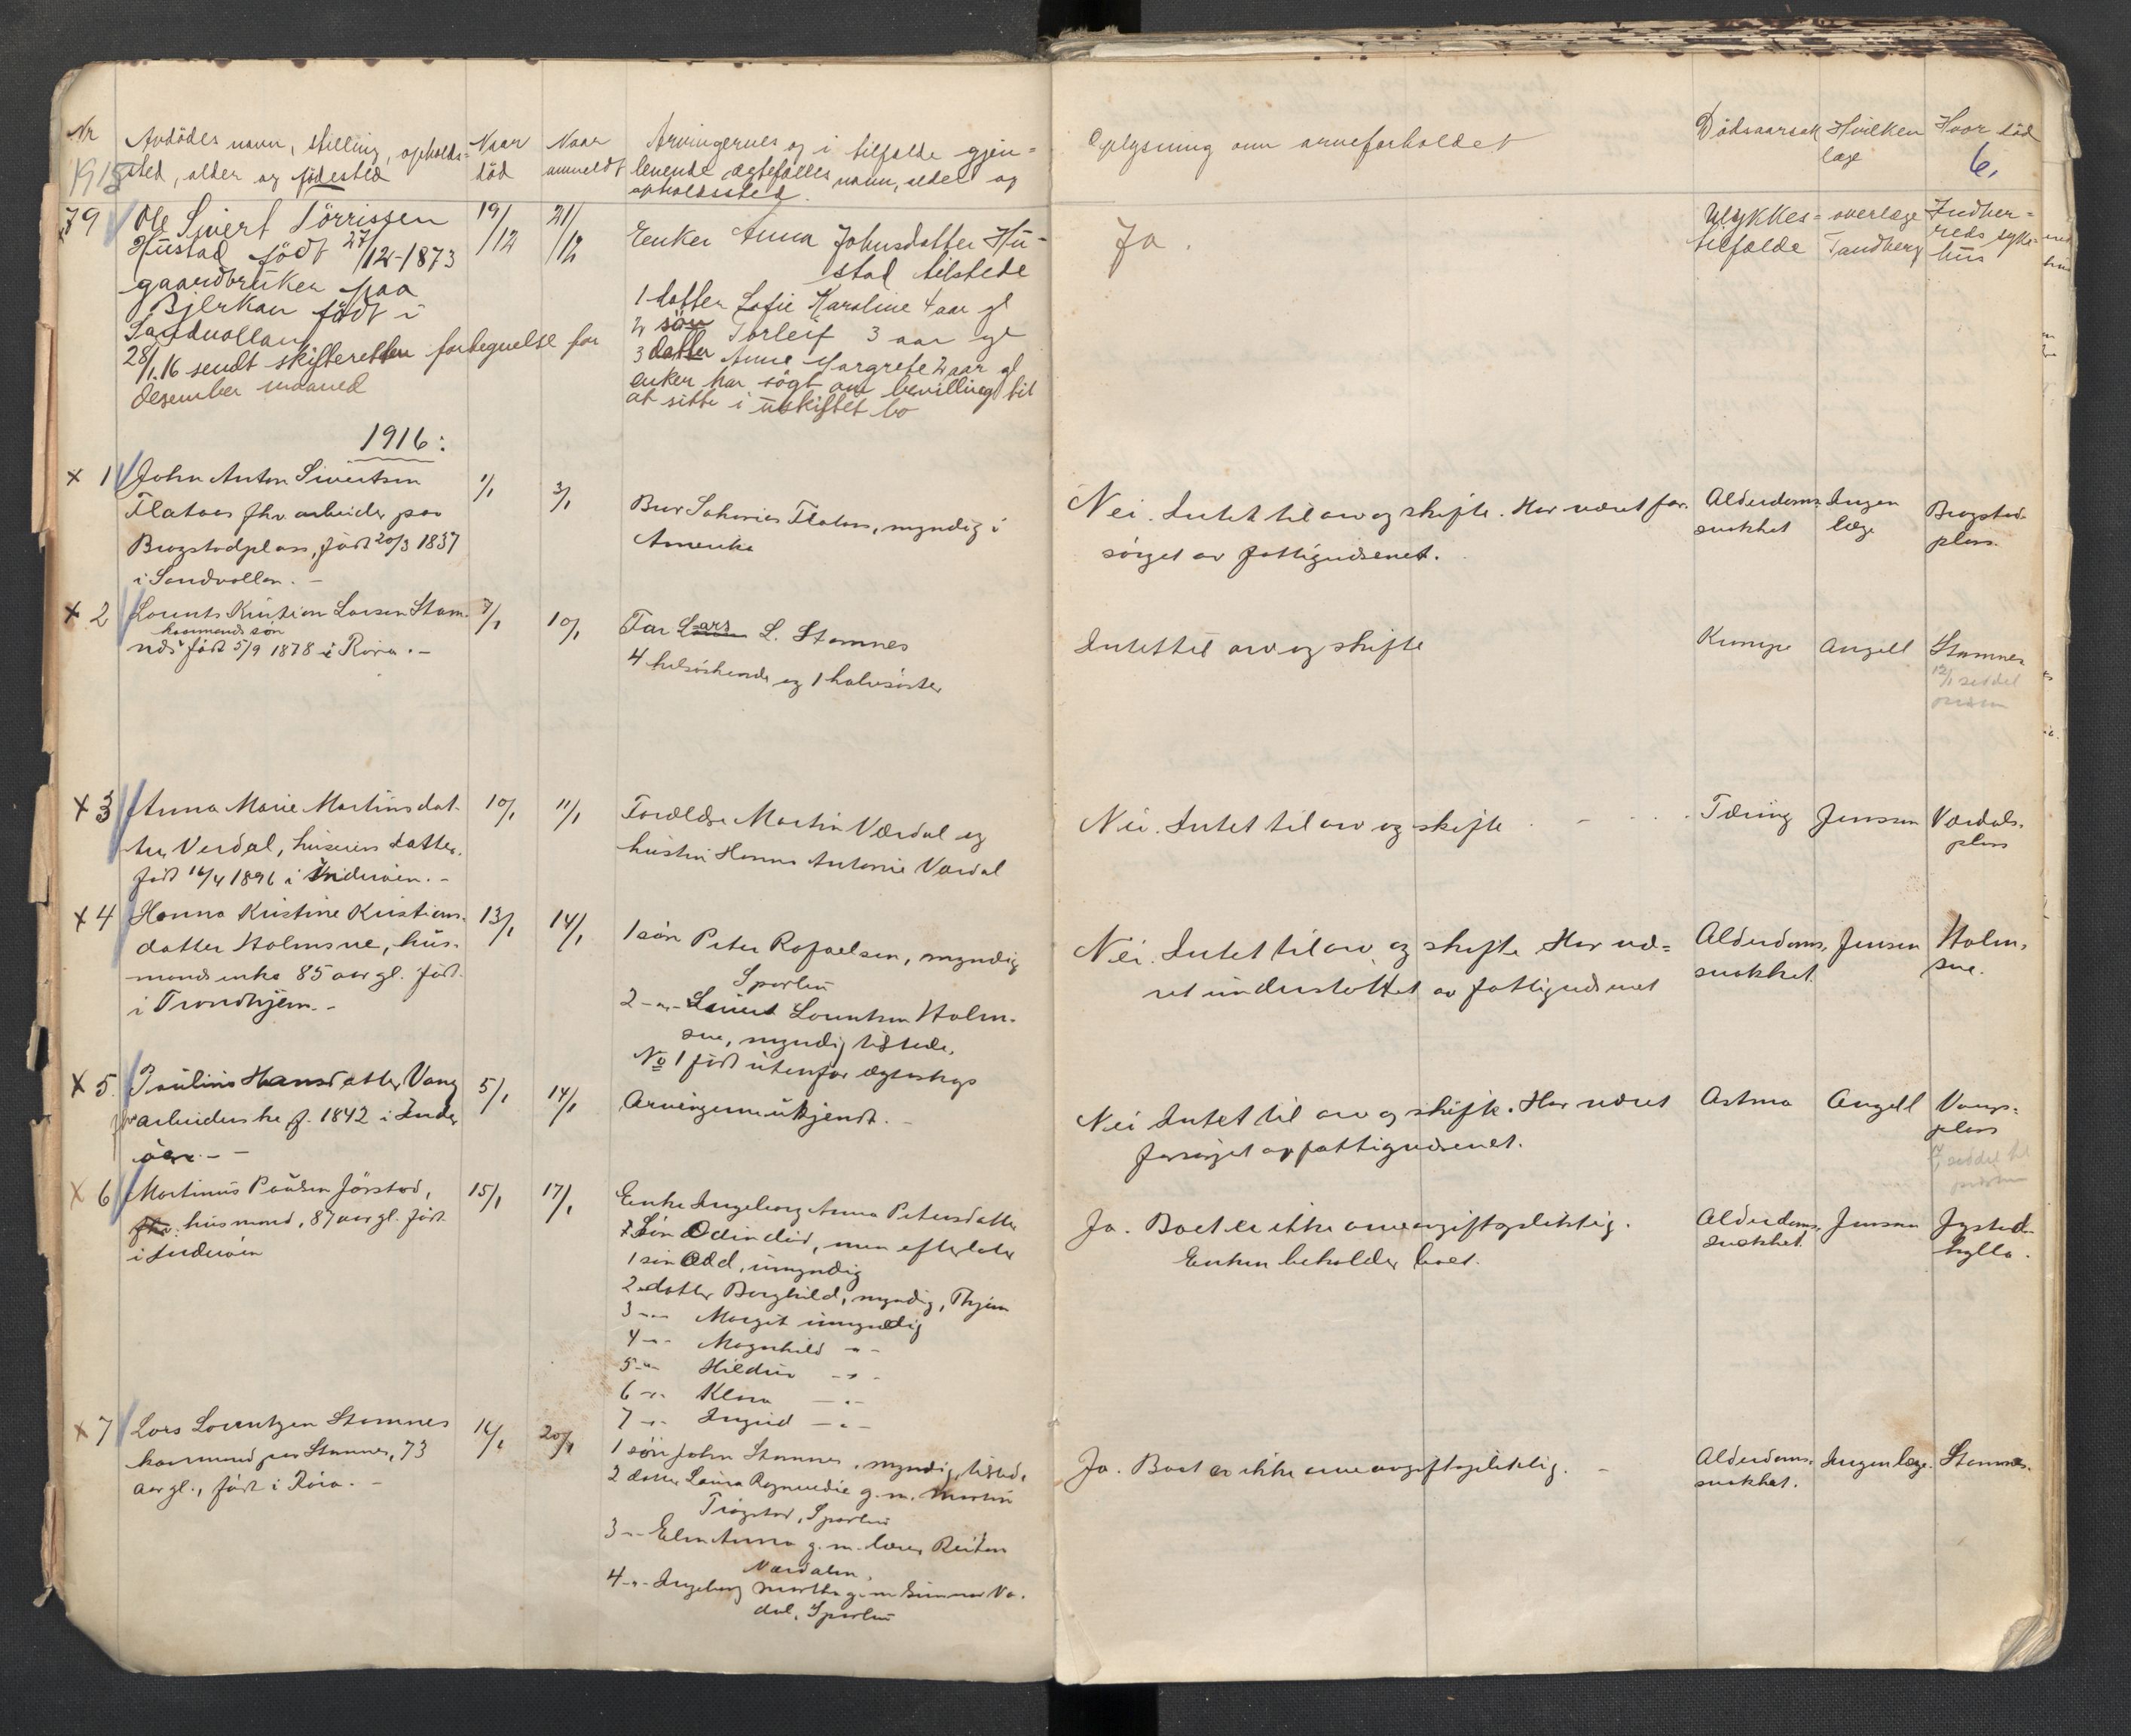 Nr
1915
Avdödes navn, stilling, opholds-
sted, alder og födested
Naar
död
Naar
anmeldt
Arvingernes og i tilfælde gjen-
levende ægtefælles navn, alder og
opholdssted.
Oplysning om arveforholdet
Dödsaarsak
Hvilken
læge
Hvor död
6.
79
Ole Sivert Törrissen
Hustad födt 27/12-1873
gaardbruker paa
Bjerkan födt i
Sandvollan
28/1.16 sendt skifteretten fortegnelse for
desember maaned
19/12
21/12
Enker Anna Johnsdatter Hu-
stad tilstede
1 datter Sofie Karoline 4 aar gl
2 sön Torleif 3 aar gl
3 datter Anne Margrete 2 aar gl
enker har sögt om bevilling til
at sitte i uskiftet bo
Ja.
Ulykkes-
tilfælde
overlæge
Sandberg
Indher-
reds syke-
hus
1916:
x 1
John Anton Sivertsen
Flataas fhv. arbeider paa
Brogstadplass, födt 20/3 1837
i Sandvollan. -
1/1
3/1
Bror Sakarias Flataas, myndig i
Amerika
Nei. Intet til arv og skifte. Har været for-
sörget av fattigvæsenet.
Alderdoms-
svakhet
Ingen
læge
Brogstad-
plass.
x 2
Lorents Kristian Larsen Stam-
kaarmands sön
nes födt 5/9 1878 i Röra. -
7/1
10/1
Far Lars L. Stamnes
4 helsöskende og 1 halvsöster
Intet til arv og skifte
Krampe
Angell
Stamnes
12/1 seddel
presten
x 3
Anna Marie Martinsdat-
ter Verdal, huseiers datter.
födt 16/4 1896 i Inderöen. -
10/1
11/1
Forældre Martin Værdal og
hustru Hanna Antonie Værdal
Nei. Intet til arv og skifte
Tæring
Jenssen
Værdals-
plass
x 4
Hanna Kristine Kristians-
datter Holmsve, hus-
mands enke 85 aar gl. födt
i Trondhjem. -
13/1
14/1
1 sön Peter Rafaelsen, myndig
Sparbu
2 -"- Sivert Lorentsen Holm-
sve, myndig tilstede.
No 1 födt utenfor ægteskap
Nei. Intet til arv og skifte Har væ-
ret understöttet av fattigvæsenet
Alderdoms-
svakhet
Jenssen
Holm-
sve.
x 5
Pauline Hansdatter Vang
fhv arbeiderske f. 1842 i Inder
öen. - -
5/1
14/1
Arvingerne ukjendt. -
Nei Intet til arv og skifte. Har været
forsörget av fattigvæsenet.
Astma
Angell
Vangs-
plass
seddel til
presten
x 6
Martinus Paulsen Jörstad,
fhv. husmand, 87 aar gl. födt
i Inderöen
15/1
17/1
Enke Ingeborg Anna Petersdatter
1 Sön Odin död, men efterlater
1 sön Odd, umyndig
2 datter Borghild, myndig, Thjem
3 -"- Margit umyndig
4 -"- Magnhild -"-
5 -"- Hildur -"-
6 -"- Klara -"-
7 -"- Ingrid -"-
Ja. Boet er ikke arveavgiftspliktig.
Enken beholder boet.
Alderdoms-
svakhet.
Jenssen
Jystad-
hylla.
x 7
Lars Lorentzen Stamnes
kaarmand paa Stamnes, 73
aar gl., födt i Röra. -
16/1
20/1
1 sön John Stamnes, myndig, tilstede
2 datter Laura Ragnvedie g. m. Martin
Trögstad, Sparbu
3 -"- Elen Anna g. m. lærer Reitan
Værdalen.
4 -"- Ingeborg Martha g. m. Gunnar Va-
dal, Sparbu
Ja. Boet er ikke arveavgiftspliktig. -
Alderdoms-
svakhet.
Ingen læge.
Stamnes.